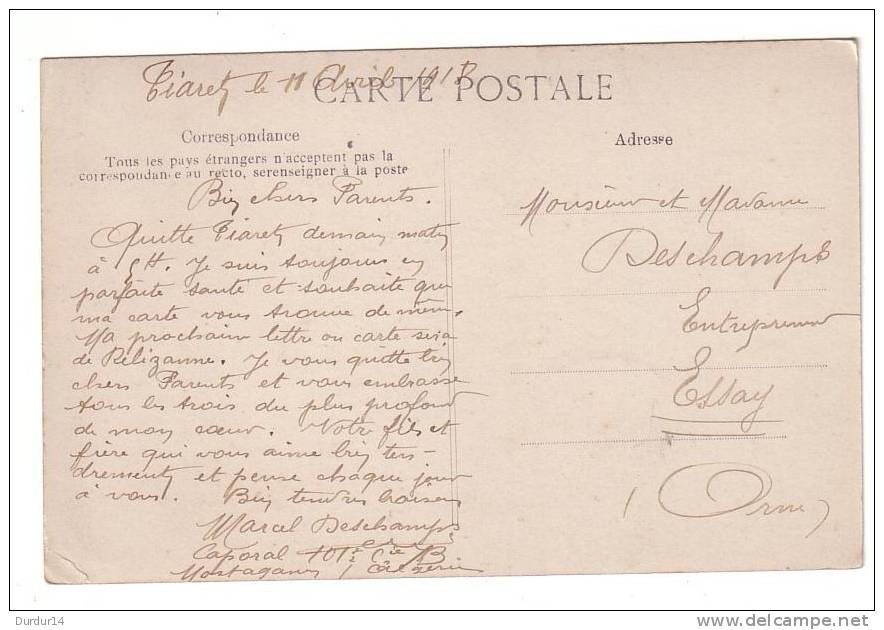 Tiaret le 11 Avril 1913
CARTE POSTALE
Correspondance
Tous les pays étrangers n'acceptent pas la
correspondance au recto, serenseigner à la poste
Bien chers Parents.
Quitte Tiaret demain matin
à 5H. Je suis toujours en
parfaite santé et souhaite que
ma carte vous trouve de même.
Ma prochaine lettre ou carte sera
de Relizanne. Je vous quitte bien
chers Parents et vous embrasse
tous les trois du plus profond
de mon cœur. Votre fils et
frère qui vous aime bien ten-
drement et pense chaque jour
à vous. Bien tendres baisers
Marcel Deschamps
Caporal Cie
Mostaganem Algérie
Adresse
Monsieur et Madame
Deschamps
Entrepreneur
Essay
(Orne)
Durdur14
www.delcampe.net